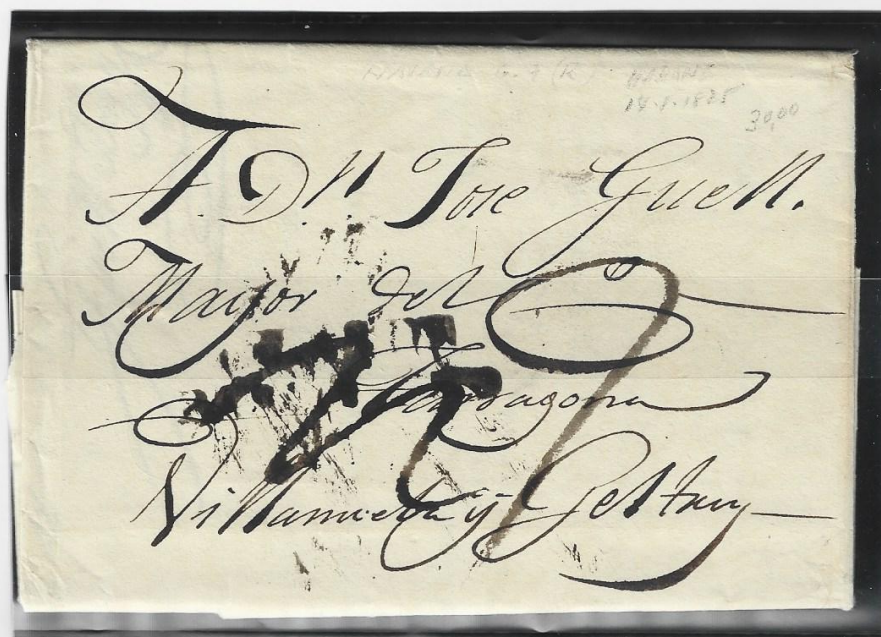 HABANA
14-1-1825
30,00
A. Dn Jose Guell.
Mayor del
Tarragona
Villanueva y Geltru